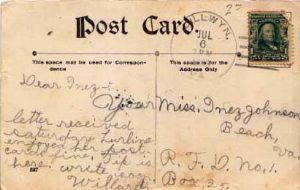 Post Card.
ULLWYN,
JUL
6
THIS SPACE MAY BE USED FOR CORRESPONDENCE
THIS SPACE IS FOR THE ADDRESS ONLY
Dear Inez:-
Your
letter received
Saturday
enjoyed her feast
fine, is
here. write soon
Willard
Miss. Inez Johnson
Beach,
Va.
R. F. D. No. 1.
Box 25